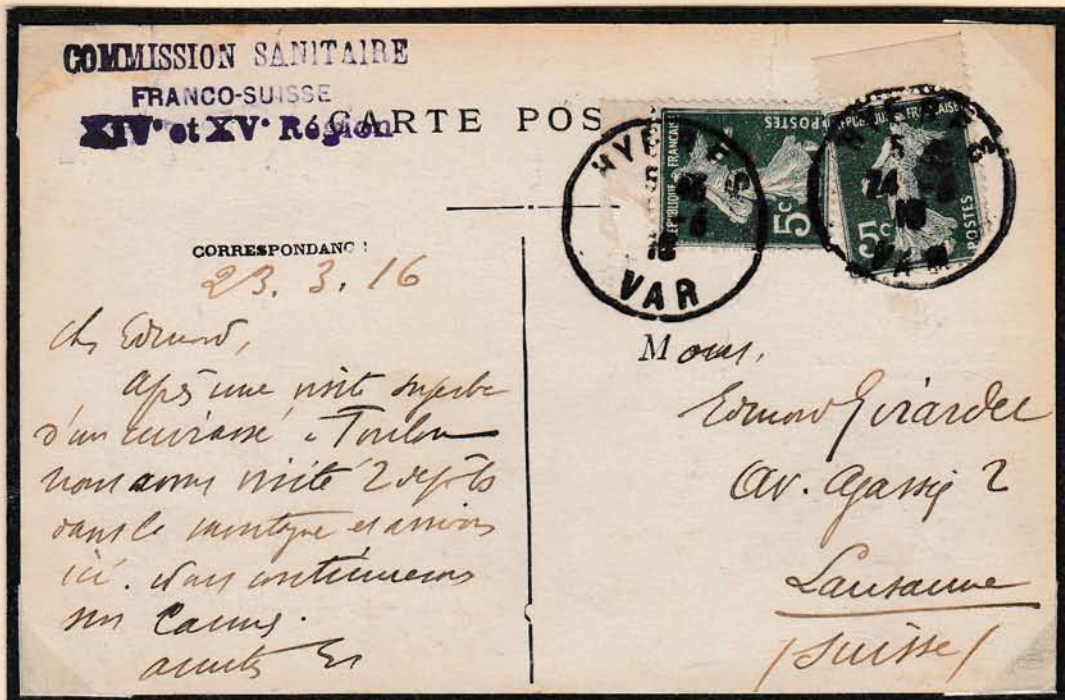 COMMISSION SANITAIRE
FRANCO-SUISSE
XIVe et XVe Région
CARTE POS
CORRESPONDANC
23. 3. 16
Ch. Edmond,
Après une visite superbe
d'un cuirassé à Toulon
nous avons visité 2 dépôts
dans la montagne et arrivons
ici. Nous continuerons
sur Cannes.
RÉPUBLIQUE FRANÇAISE
POSTES
5c
RÉPUBLIQUE FRANÇAISE
POSTES
5c
HYERES
VAR
HYERES
24
VAR
Mons.
Edmond Girardet
Av. Agassiz 2
Lausanne
(Suisse)